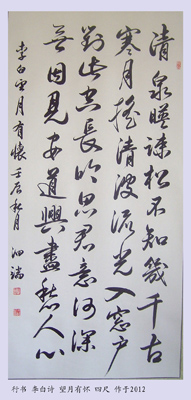 清泉暎疎松不知幾千古
寒月搖清波流光入窓户
對此空長吟思君意何深
無因見安道興盡愁人心
李白望月有懷壬辰秋月
行书 李白诗 望月有怀 四尺 作于2012